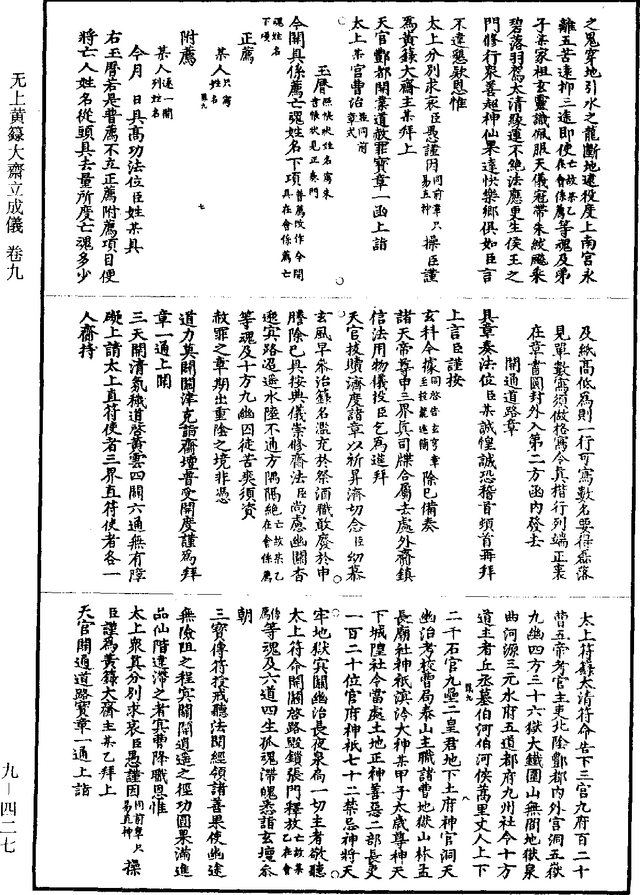 之鬼穿地引水之龍斷地逮役度上南宮永
離五苦遠抑三途即使亡故某乙在會係薦等魂及弟
子某家祖玄靈識佩服天儀冠帶朱紱飈乘
碧落羽駕太清騄運不絕法應更生侯王之
門修行衆善超神仙果達快樂鄉俱如臣言
不違懇欵恩惟
太上分別求哀臣愚謹因同前章只易五神操臣謹
為黃籙大齋主某拜上
天官酆都開業道赦罪寶章一函上詣
太上某官曹治並同前章式
玉曆
今開具係薦亡魂姓名下項
正薦
某人只寫姓名
附薦
某人逐一開列姓名
今月 日具高功法位臣姓某具
右玉曆若是普薦不立正薦附薦項目便
將亡人姓名從頭具去量所度亡魂多少
及紙高低為則一行可寫數名要得磊落
見單數寫須做格寫令真楷行列端正裹
在章書圓封外入第二方函内發去
開通道路章
具章奏法位臣某誠惶誠恐稽首頓首再拜
上言臣謹按
玄科今據同啓告玄穹章至投誠進簡除已備奏
諸天帝尊申三界真司牒合屬去處外齋鎮
信法用物儀投臣乞為進拜
天官拔贖濟度諸章以祈昇濟切念臣幼慕
玄風早參治籙名濫充於祭酒職敢廢於申
謄除已具按典儀崇修齋法臣尚慮幽關杳
邈冥路迢遥水陸不通方隅隔絕亡故某乙在會係薦
等魂及十方九幽囚徒苦爽須資
赦罪之章期出重陰之境非憑
道力莫開關津克詣齋壇普受開度謹為拜
章一通上聞
三天開清氛穢道啓黃雲四闢六通無有障
礙上請太上直符使者三界直符使者各一
人齋持
太上符籙太清符命告下三官九府百二十
曹五帝考官主吏北陰酆都内外宮洞五嶽
九幽四方三十六獄大鐵圍山無間地獄泉
曲河源三元水府五道都府九州社令十方
道主者丘丞墓伯河伯河侯萬里丈人上下
二千石官九壘二皇君地下土府神官洞天
幽治考校曹局泰山主職諸曹地獄山林孟
長廟社神祇溟泠大神某甲子太歲尊神天
下城隍社令當處土地正神善惡二部長吏
一百二十位官府神祇七十二禁忌神將天
牢地獄冥關幽治長夜泉扃一切主者欽聽
太上符命開闢啓路毀鎖張門釋放亡故某乙在會
係薦等魂及六道四生孤魂滯魄悉詣玄壇參
朝
三寶傳符授戒聽法聞經領諸善果使幽途
無險阻之程冥關開逍遥之徑功圓果滿進
品仙階違滯之者冥曹降職恩惟
太上衆真分別求哀臣愚謹因同前章只易直神操
臣謹為黃籙大齋主某乙拜上
天官開通道路寶章一通上詣
无上黃籙大齋立成儀 卷九
九－四二七